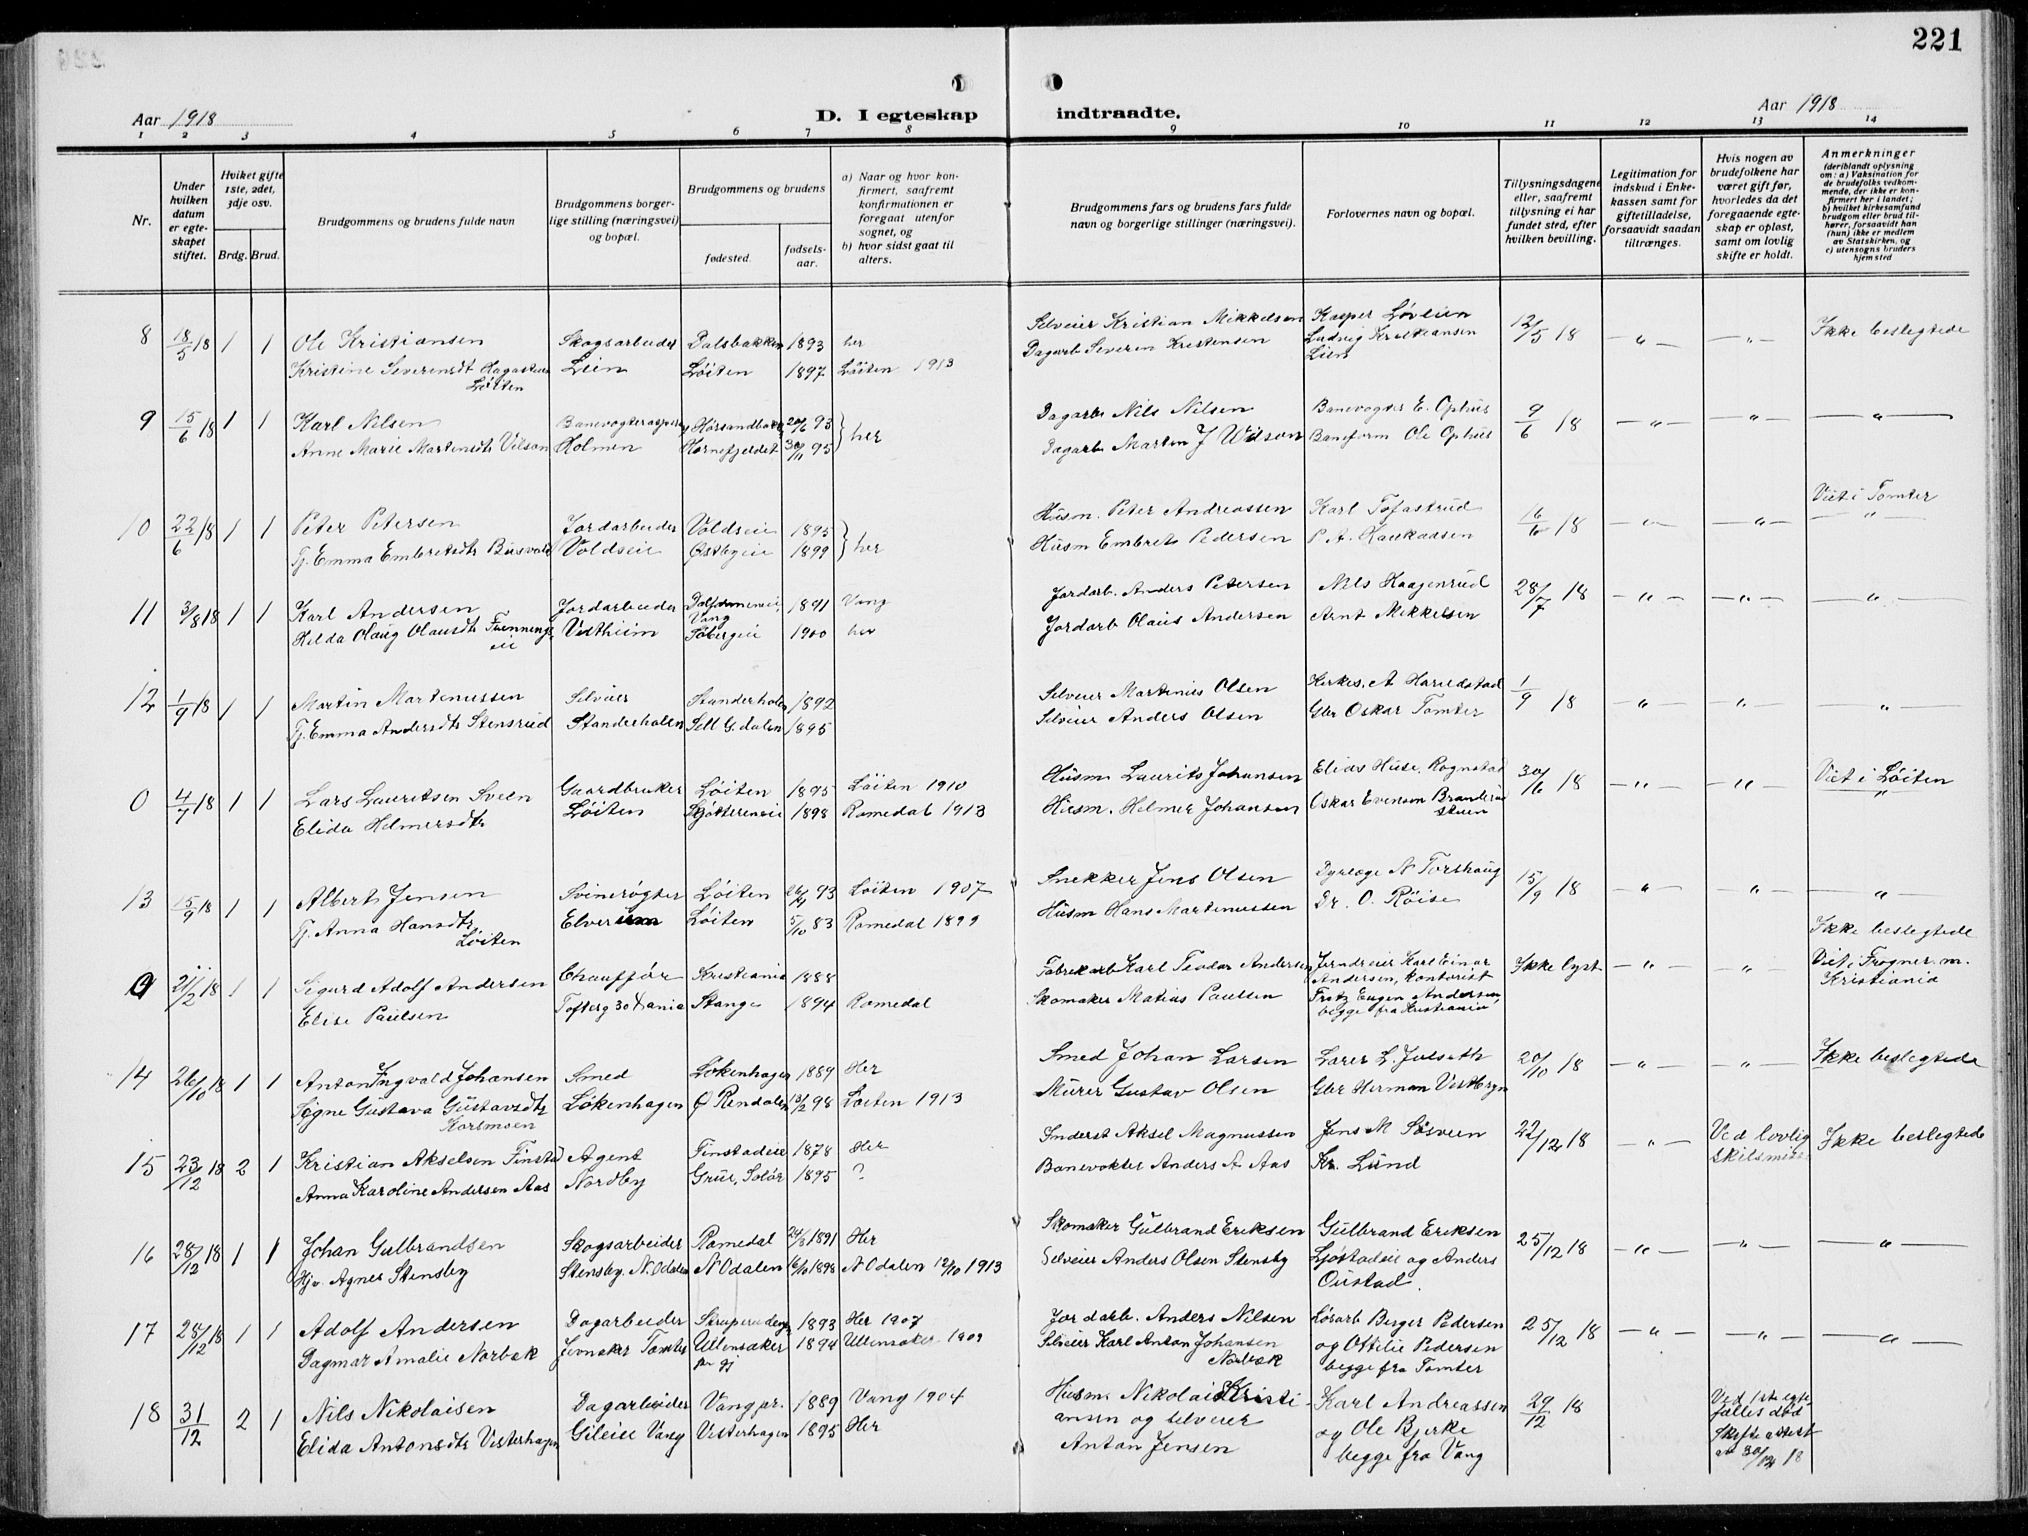 221
Aar 1918
D. I egteskap indtraadte.
Aar 1918
1 2 3 4 5 6 7 8 9 10 11 12 13 14
Nr.
Under hvilken datum er egteskapet stiftet.
Hviket gifte 1ste, 2det, 3dje osv.
Brdg. Brud.
Brudgommens og brudens fulde navn
Brudgommens borgerlige stilling (næringsvei) og bopæl.
Brudgommens og brudens
fødested.
fødselsaar.
a) Naar og hvor konfirmert, saafremt konfirmationen er foregaat utenfor sognet, og
b) hvor sidst gaat til alters.
Brudgommens fars og brudens fars fulde navn og borgerlige stillinger (næringsvei).
Forlovernes navn og bopæl.
Tillysningsdagene eller, saafremt tillysning ei har fundet sted, efter hvilken bevilling.
Legitimation for indskud i Enkekassen samt for giftetilladelse, forsaavidt saadan tiltrænges.
Hvis nogen av brudefolkene har været gift før, hvorledes da det foregaaende egteskap er opløst, samt om lovlig skifte er holdt.
Anmerkninger (deriblandt oplysning om: a) Vaksination for de brudefolks vedkommende, der ikke er konfirmert her i landet; b) hvilket kirkesamfund brudgom eller brud tilhører, forsaavidt han (hun) ikke er medlem av Statskirken, og c) utensogns bruders hjemsted
8 18/5 18 1 1 Ole Kristiansen Skogsarbeider Dalsbakken 1893 her Selveier Kristian Mikkelsen Kasper Løvlien 12/5 18 — " — — " — Ikke beslegtede
Kristine Severensdt Hagasteen Løiten Lien Løiten 1897 Löiten 1913 Dagarb Severin Kristensen Ludvig Kristiansen Lien
9 15/6 18 1 1 Karl Nilsen Banevogterasp Hörsandbakk 20/6 93 } her Dagarb Nils Nilsen Banevogter E. Ophus 9/6 18 — " — — " — — " —
Anne Marie Martinsdtr Vilson Holmen Hornefjeldet 30/11 95 Dagarb Martin J Wilson Baneform Ole Ophus
10 22/6 18 1 1 Peter Petersen Jordarbeider Voldseie 1895 } her Husm. Peter Andreassen Karl Tofastrud 16/6 18 — " — — " — Viet i Tomter — " —
Tj. Emma Embretsdtr Busvold Voldseie Østbyeie 1899 Husm Embret Pedersen P A. Haukaasen
11 3/8 18 1 1 Karl Andersen Jordarbeider Vang 1891 Vang Jordarb. Anders Petersen Nils Haagenrud 28/7 18 — " — — " — — " —
Hilda Olaug Olausdt Frenningseie Vestheim Töbergeie 1900 her Jordarb Olaus Andersen Arnt Mikkelsen
12 1/9 18 1 1 Martin Martinussen Selveier Standerholen 1892 Selveier Martinius Olsen Kirkes. A Harildstad 1/9 18 — " — — " — — " —
Tj. Emma Andersdtr Stensrud Standerholen Sell G.dalen 1895 Selveier Anders Olsen Gbr Oskar Tomter
0 4/7 18 1 1 Lars Lauritsen Sveen Gaardbruker Löiten 1895 Löiten 1910 Husm Laurits Johansen Elias Huse, Rognstad 30/6 18 — " — — " — Viet i Löiten "
Elida Helmersdtr Löiten Gjötterenseie 1898 Romedal 1913 Husm. Helmer Johansen Oskar Evensen Branderudstuen
13 15/9 18 1 1 Albert Jensen Svinerögter Löiten 26/4 93 Löiten 1907 Snekker Jens Olsen Dyrlæge N Torshaug 15/9 18 — " — — " — — " —
Tj. Anna Hansdtr Löiten Elverum Löiten 5/10 83 Romedal 1899 Husm Hans Martinussen Dr. O. Röise Ikke beslegtede
0 21/12 18 1 1 Sigurd Adolf Andersen Chauffør Kristiania 1888 Fabrikarb Karl Teodor Andersen Jerndreier Karl Einar Andersen, Kontorist Ikke lyst — " — — " — Viet i Frogner m. Kristiania
Elise Paulsen Toftesg 30 Xania Stange 1894 Romedal Skomaker Matias Paulsen Fritz Eugen Andersen, begge fra Kristiania
14 26/10 18 1 1 Anton Ingvald Johansen Smed Lökenhagen 1889 Her Smed Johan Larsen Lærer L. Julseth 20/10 18 — " — — " — Ikke beslegtede
Signe Gustava Gustavsdtr Korsmoen Løkenhagen Ø Rendalen 13/2 98 Løiten 1913 Murer Gustav Olsen Gbr Herman Vestbryn
15 23/12 18 2 1 Kristian Akselsen Finstad Agent Finstadeie 1878 Her Inderst Aksel Magnussen Jens M Sösveen 22/12 18 — " — Ved lovlig skilsmisse Ikke beslegtede
Anna Karoline Andersen Aas Nordby Grue, Solör 1895 ? Banevokter Anders A Aas Kr. Lund
16 28/12 18 1 1 Johan Gulbrandsen Skogsarbeider Romedal 24/8 1891 Her Skomaker Gulbrand Eriksen Gulbrand Eriksen 25/12 18 — " — — " — — " —
Hjv. Agnes Stensby Stensby. N.Odalen N Odalen 16/10 1898 N Odalen 12/10 1913 Selveier Anders Olsen Stensby Ljøstadeie og Anders Oustad.
17 28/12 18 1 1 Adolf Andersen Dagarbeider 1893 Her 1907 Jordarb. Anders Nilsen Lösarb Berger Pedersen 25/12 18 — " — — " — — " —
Dagmar Amalie Norbæk Jevnaker Tomter Ullensaker pr gj 1894 Ullensaker 1909 Selveier Karl Anton Johansen Norbæk og Ottilie Pedersen begge fra Tomter
18 31/12 2 1 Nils Nikolaisen Dagarbeider Vang pr. 1889 Vang 1904 Husm. Nikolai Kristiansen og selveier Karl Andreassen 29/12 18 Ved 1ste egtefælles død Skifteattest av 30/12 18
Elida Antonsdtr Vesterhagen Gileeie Vang Vesterhagen 1895 Her Anton Jensen og Ole Bjerke begge fra Vang